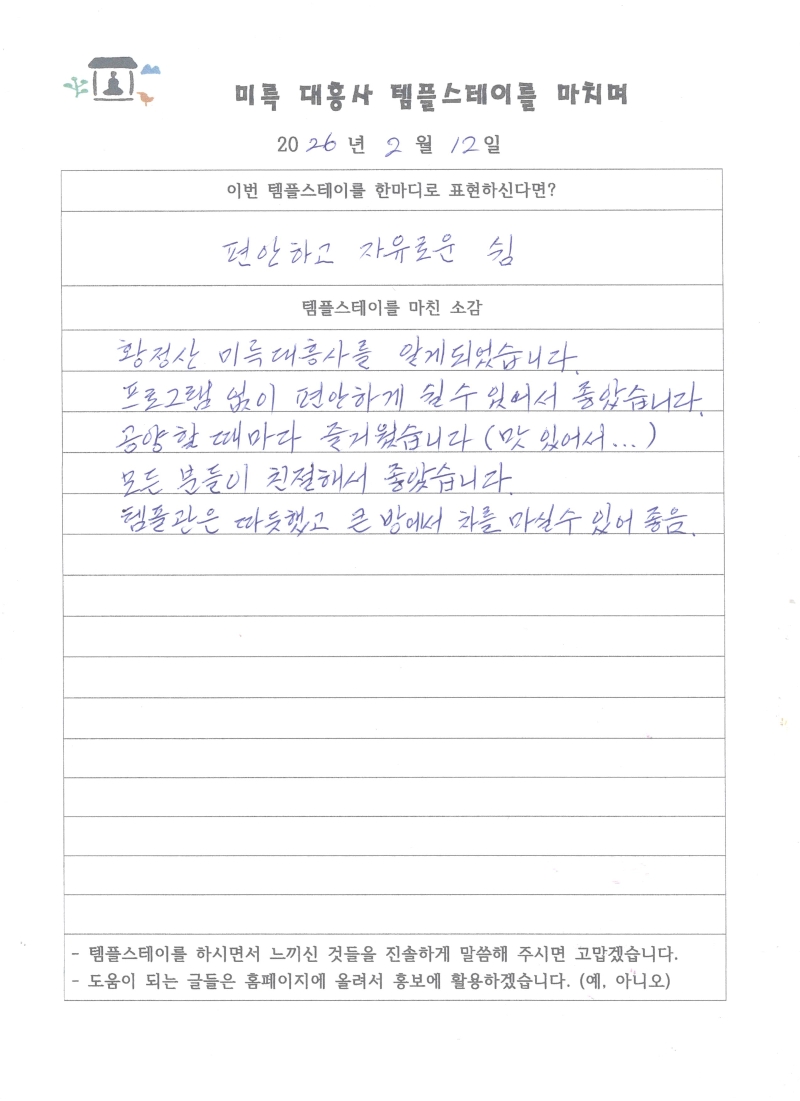 미륵 대흥사 템플스테이를 마치며
2026년 2월 12일
이번 템플스테이를 한마디로 표현하신다면?
편안하고 자유로운 쉼
템플스테이를 마친 소감
황정산 미륵대흥사를 알게되었습니다.
프로그램 없이 편안하게 쉴수 있어서 좋았습니다.
공양할 때마다 즐거웠습니다 (맛 있어서...)
모든 분들이 친절해서 좋았습니다.
템플관은 따듯했고 큰 방에서 차를 마실수 있어 좋음.
- 템플스테이를 하시면서 느끼신 것들을 진솔하게 말씀해 주시면 고맙겠습니다.
- 도움이 되는 글들은 홈페이지에 올려서 홍보에 활용하겠습니다. (예, 아니오)